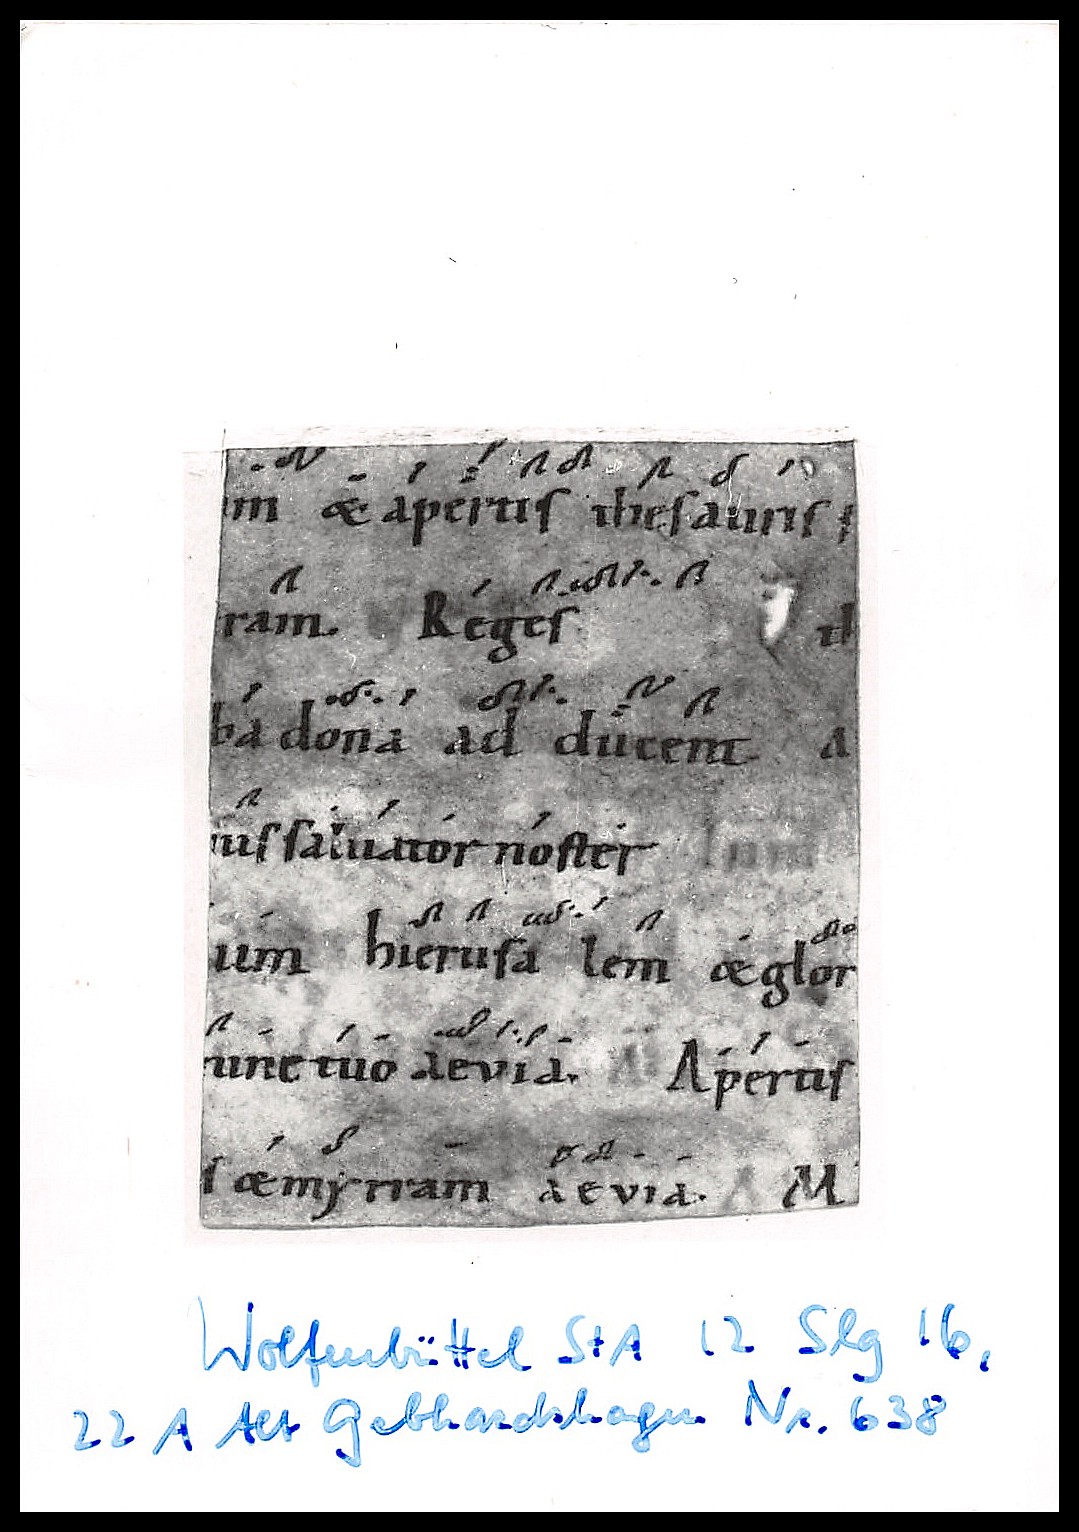 um & apertis thesauris s
ram. Reges th
ba dona ad ducent A
nus saluator noster lum
um hierusa lem & glor
runt tuo aevia. Apertis
s & myrram aevia. A M
Wolfenbüttel StA 12 Slg 16,
22 A Alt Gebhardshagen Nr. 638